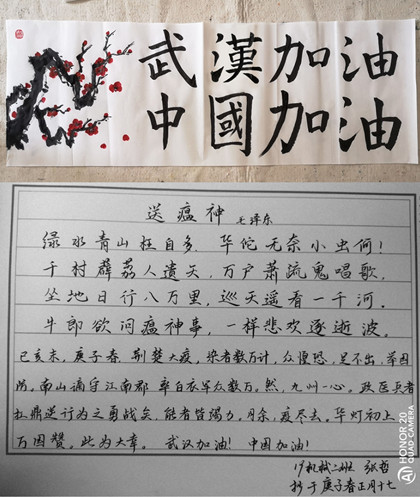 武漢加油
中國加油
送瘟神 毛泽东
绿水青山枉自多，华佗无奈小虫何！
千村薜荔人遗矢，万户萧疏鬼唱歌。
坐地日行八万里，巡天遥看一千河。
牛郎欲问瘟神事，一样悲欢逐逝波。
己亥末，庚子春，荆楚大疫，染者数万计，众惶恐，足不出，举国
防。南山谪守江南郡 率白衣军众数万。然，九州一心。政医兵者
扛鼎逆行为之勇战矣，能者皆竭力。月余，疫尽去。华灯初上，
万国赞。此为大幸。武汉加油！中国加油！
19机械二班 张哲
抄于庚子春正月十七
HONOR 20
QUAD CAMERA